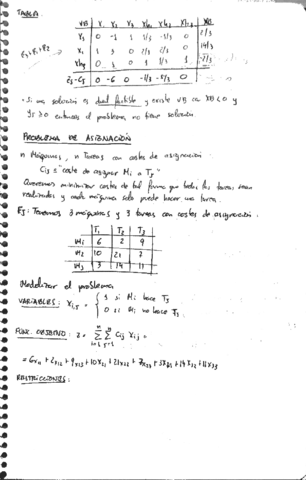 TABLA:
VB Y1 Y2 Y3 XB
2/3
14/3
-2/3
Zj-Cj 0 -6 0 -1/3 -5/3 0
· Si una solución es dual factible y existe VB con XB<0 y
yj≥0 entonces el problema no tiene solución.
PROBLEMA DE ASIGNACIÓN
n Máquinas, n Tareas con costes de asignación:
Cij = "coste de asignar Mi a Tj"
Queremos minimizar costes de tal forma que todas las tareas sean
realizadas y cada máquina solo puede hacer una tarea.
Ej: Tenemos 3 máquinas y 3 tareas con costes de asignación:
T1 T2 T3
M1 6 2 9
M2 10 21 7
M3 3 14 11
Modelizar el problema
VARIABLES: Xi,j = { 1 si Mi hace Tj
0 si Mi no hace Tj
FUNC. OBJETIVO: Z = Σ Σ Cij Xij =
= 6x11 + 2x12 + 9x13 + 10x21 + 21x22 + 7x23 + 3x31 + 14x32 + 11x33
RESTRICCIONES: